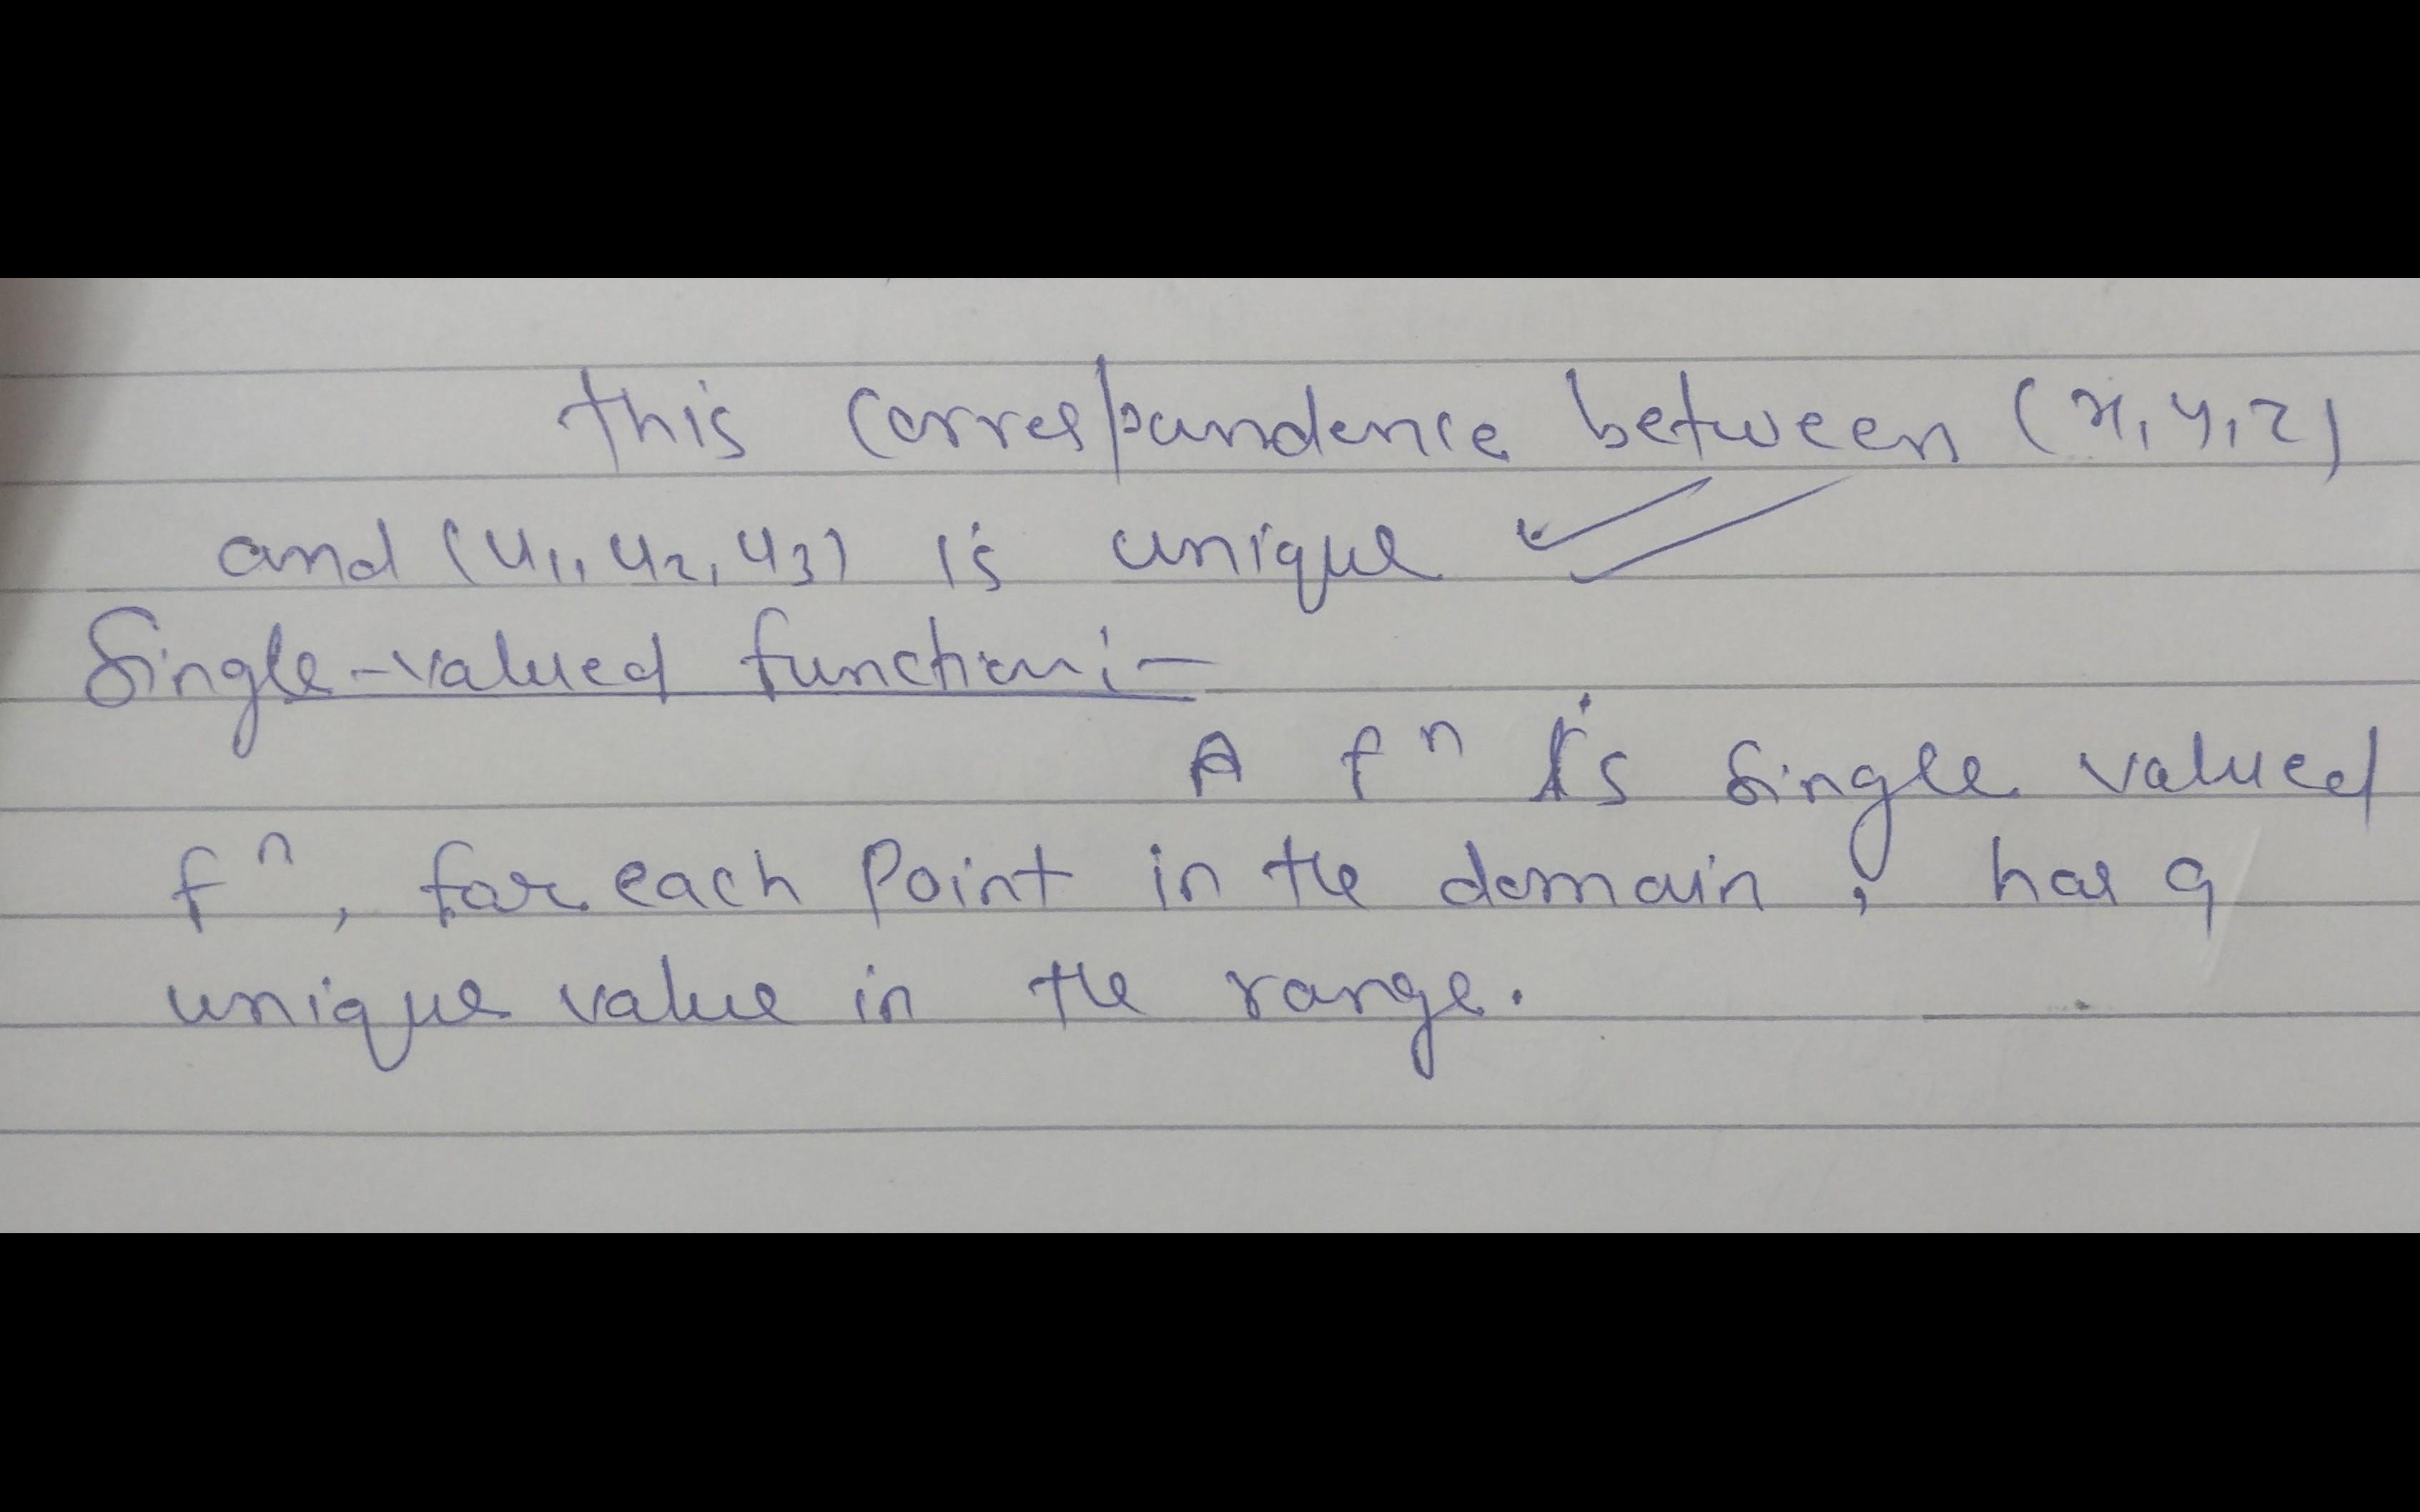 this correspondence between (x, y, z)
and (u1, u2, u3) is unique
Single-valued function:-
A fⁿ is single valued
fⁿ, for each point in the domain, has a
unique value in the range.